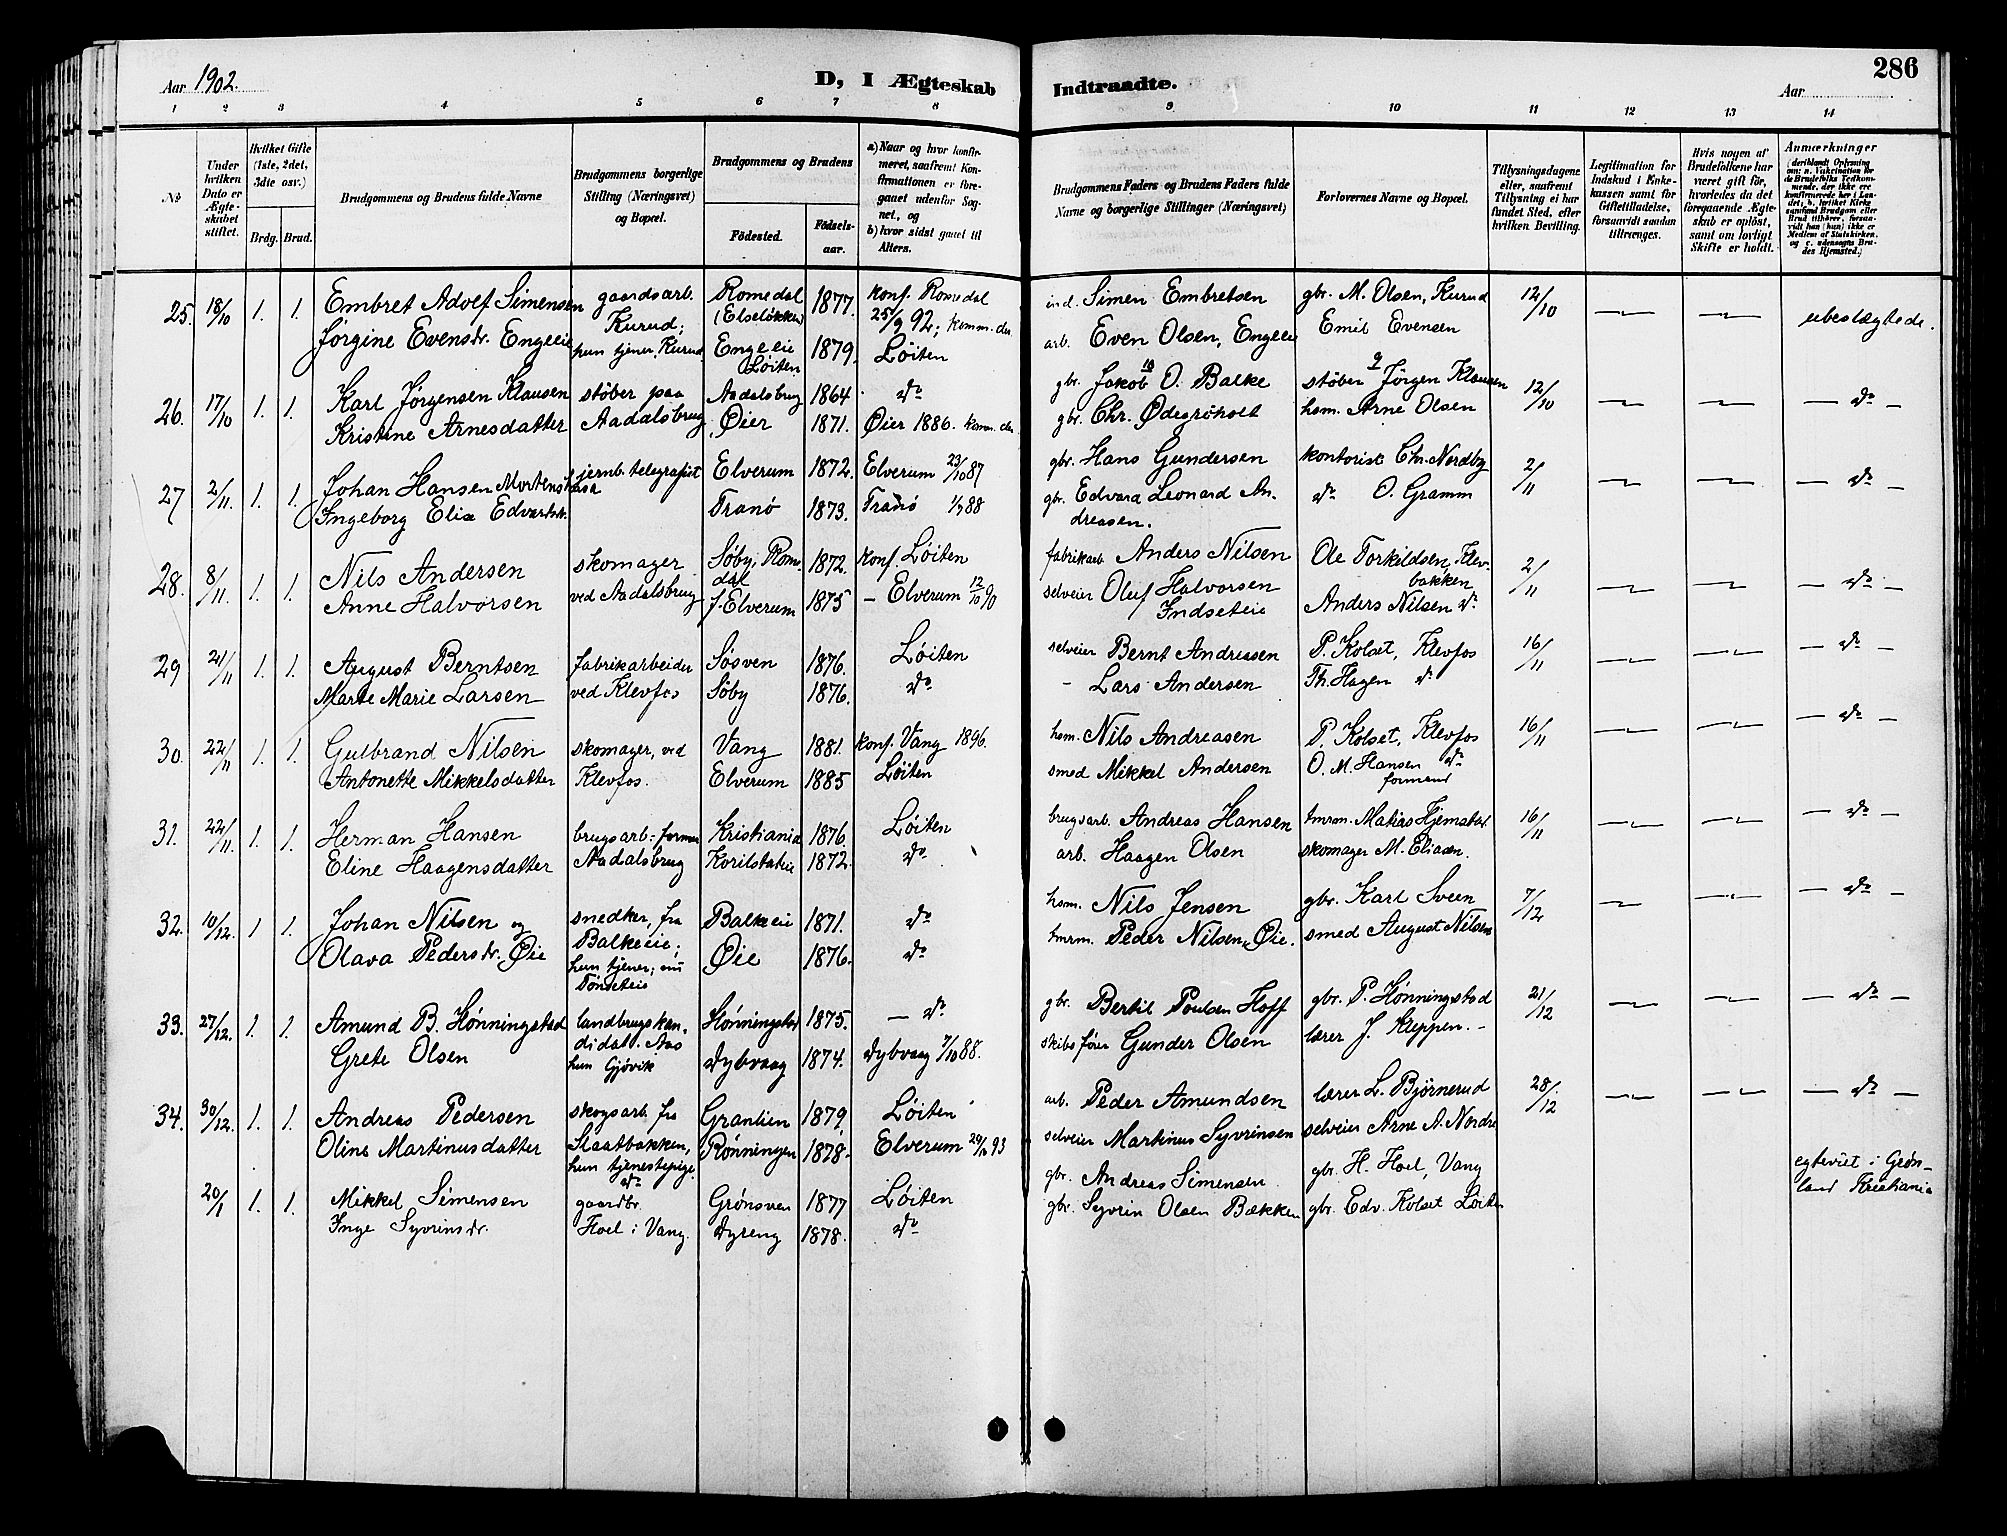 286
Aar 1902.
D, I Ægteskab Indtraadte.
Aar
1 2 3 4 5 6 7 8 9 10 11 12 13 14
No
Under hvilken Dato er Ægteskabet stiftet.
Hvilket Gifte (1ste, 2det, 3dte osv.)
Brdg. Brud.
Brudgommens og Brudens fulde Navne
Brudgommens borgerlige Stilling (Næringsvei) og Bopæl.
Brudgommens og Brudens
Födested. Födselsaar.
a) Naar og hvor konfirmeret, saafremt Konfirmationen er foregaaet udenfor Sognet, og
b) hvor sidst gaaet til Alters.
Brudgommens Faders og Brudens Faders fulde Navne og borgerlige Stillinger (Næringsvei)
Forlovernes Navne og Bopæl.
Tillysningsdagene eller, saafremt Tillysning ei har fundet Sted, efter hvilken Bevilling.
Legitimation for Indskud i Enkekassen samt for Giftetilladelse, forsaavidt saadan tiltrænges.
Hvis nogen af Brudefolkene har været gift för, hvorledes da det foregaaende Ægteskab er oplöst, samt om lovligt Skifte er holdt.
Anmærkninger
25. 18/10 1. 1. Embret Adolf Simensen gaardsarb. Romedal 1877. konf. Romedal ind. Simen Embretsen gbr. M. Olsen, Kurud 12/10
Kurud; (Elseløkken) 25/9 92; komm. do ubeslægtede.
Jørgine Evensdr. Engeeie hun tjener, Kurud Engeeie Løiten 1879. Løiten arb. Even Olsen, Engeeie Emil Evensen
26. 17/10 1. 1. Karl Jørgensen Klausen støber paa Aadalsbrug 1864 do gbr. Jakob O. Balke støber Jørgen Klausen 12/10 do
Kristine Arnesdatter Aadalsbrug Øier 1871. Øier 1886. komm. do gbr. Chr. Ødegrøholt hsm. Arne Olsen
27 2/11. 1. 1. Johan Hansen jernb. telegrafist Elverum 1872. Elverum 23/10 87 gbr. Hans Gundersen kontorist Chr. Nordby 2/11 do
Ingeborg Elise Edvardsdr. Tranø 1873. Tranø 1/7 88 gbr. Edvard Leonard Andreasen. do O. Gramm
28. 8/11. 1. 1. Nils Andersen skomager Søby, Romedal 1872. konf. Løiten fabrikarb Anders Nilsen Ole Torkildsen, Klevbakken 2/11 do
Anne Halvorsen ved Aadalsbrug f. Elverum 1875 Elverum 12/10 90 selveier Oluf Halvorsen Indseteie Anders Nilsen do
29 21/11 1. 1. August Berntsen fabrikarbeider Søsven 1876. Løiten selveier Bernt Andreasen P. Kolset, Klevfos 16/11 do
Marte Marie Larsen ved Klevfos Søby 1876. do Lars Andersen Th. Hagen do
30. 22/11 1. 1. Gulbrand Nilsen skomager, ved Vang 1881. konf. Vang 1896. hsm. Nils Andreasen P. Kolset, Klevfos 16/11 do
Antonette Mikkelsdatter Klevfos. Elverum 1885 Løiten smed Mikkel Andersen O. M. Hansen do formand
31. 22/11. 1. 1. Herman Hansen brugsarb.-former Kristiania 1876. Løiten brugsarb. Andreas Hansen tmrm. Matias 16/11 do
Eline Haagensdatter Aadalsbrug 1872. do arb. Haagen Olsen skomager M. Eliasen.
32. 10/12. 1 1. Johan Nilsen og snedker, fra Balkeeie 1871. do hsm. Nils Jensen gbr. Karl Sveen 7/12 do
Olava Pedersdr. Øie Balkeeie; hun tjener; Øie 1876. do tmrm. Peder Nilsen, Øie. smed August Nilsen
33. 27/12. 1. 1. Amund B. Hønningstad landbrugskandidat. Aas Hønningstad 1875. do gbr. Bertil Poulsen Hoff gbr. P. Hønningstad 21/12 do
Grete Olsen hun Gjøvik Dybvaag 1874. Dybvaag 7/10 88. skibsfører Gunder Olsen lærer J. Kreppen.
34. 30/12. 1. 1. Andreas Pedersen skogsarb. fra Granlien 1879. Løiten arb. Peder Amundsen lærer L. Bjørnerud 28/12 do
Oline Martinusdatter Slaatbakken, hun tjenestepige do Rønningen 1878. Elverum 93 selveier Martinus Syvrinsen selveier Arne A. Nordre
20/1 1. 1. Mikkel Simensen gaardbr. Grønsven 1877 Løiten gbr. Andreas Simensen gbr. H. Hoel, Vang egteviet i Grønland Kristiania
Inge Syvrinsdr. Hoel i Vang. Dyreng 1878. do gbr. Syvrin Olsen Bækken gbr. Edv. Kolset Løiten